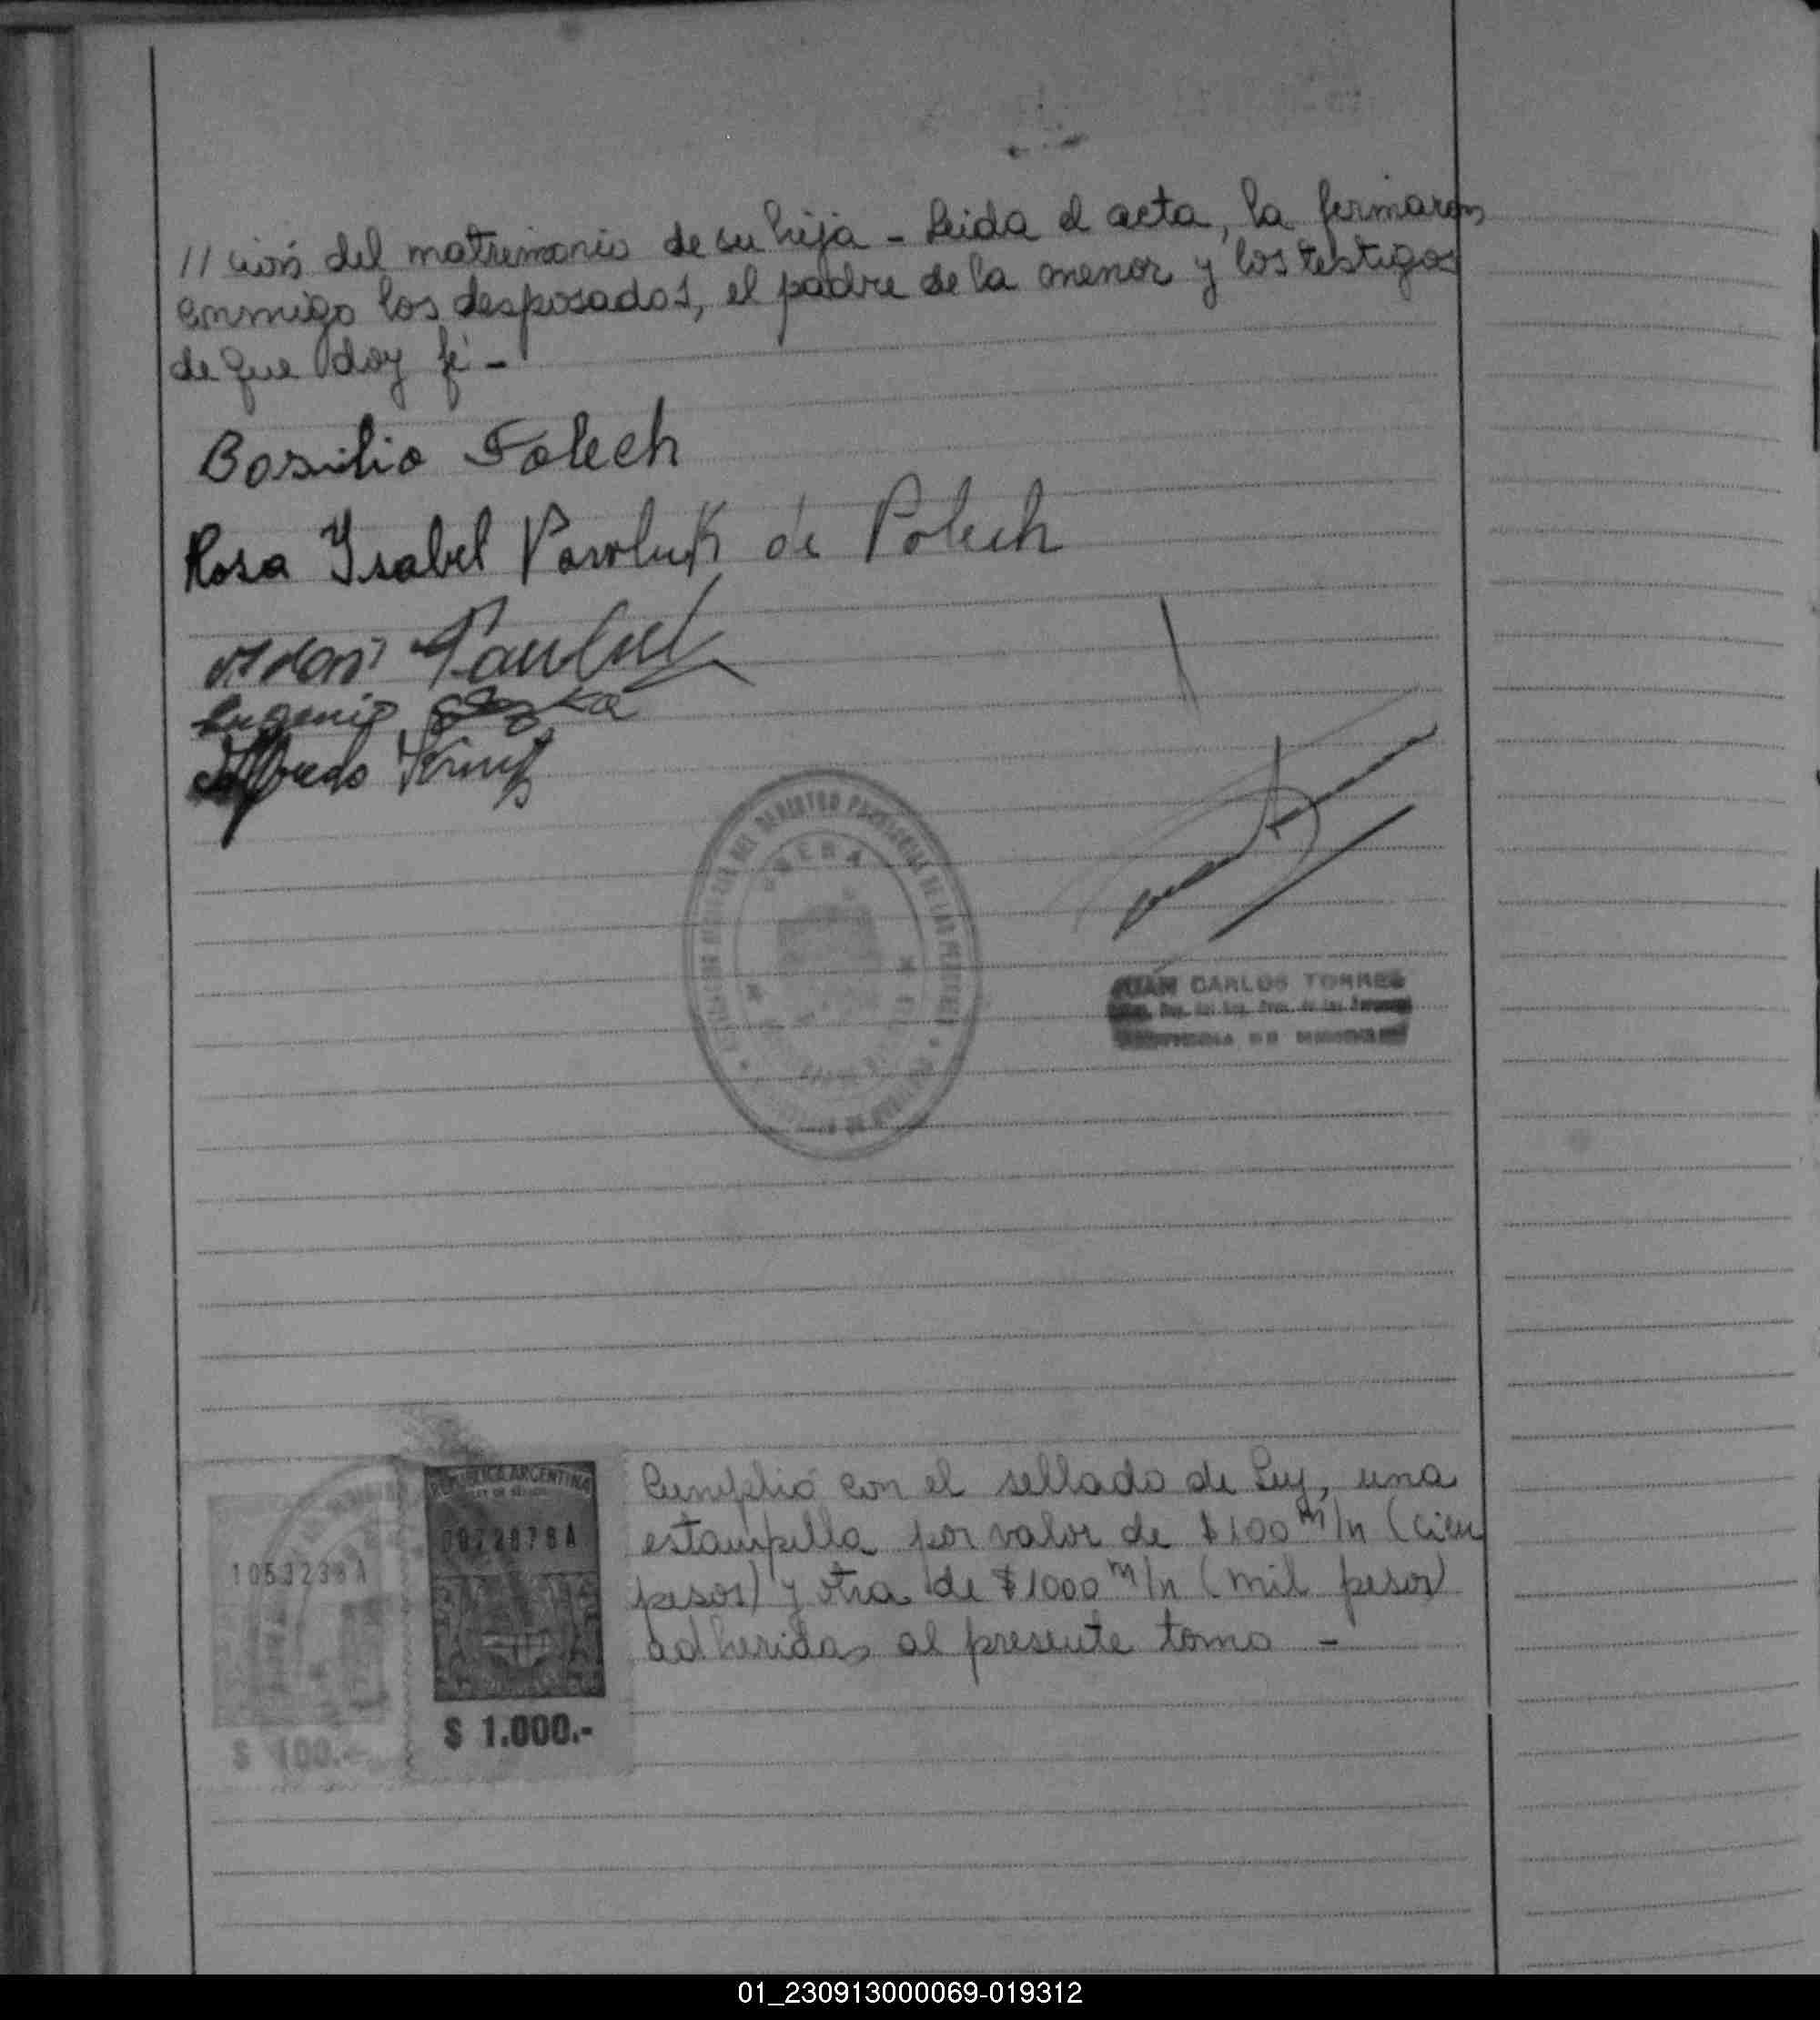 //ción del matrimonio de su hija - Leida el acta, la firmaron
conmigo los desposados, el padre de la menor y los testigos
de que doy fé -
Basilio Polech
Rosa Ysabel Pawluk de Polech
Pawluk
Eugenio
Alfredo
OBERA
JUAN CARLOS TORRES
REPUBLICA ARGENTINA
0972878 A
1053238 A
$ 100.-
$ 1.000.-
Cumplió con el sellado de Ley, una
estampilla por valor de $100 m/n (cien
pesos) y otra de $1000 m/n (mil pesos)
adheridas al presente tomo -
01_230913000069-019312